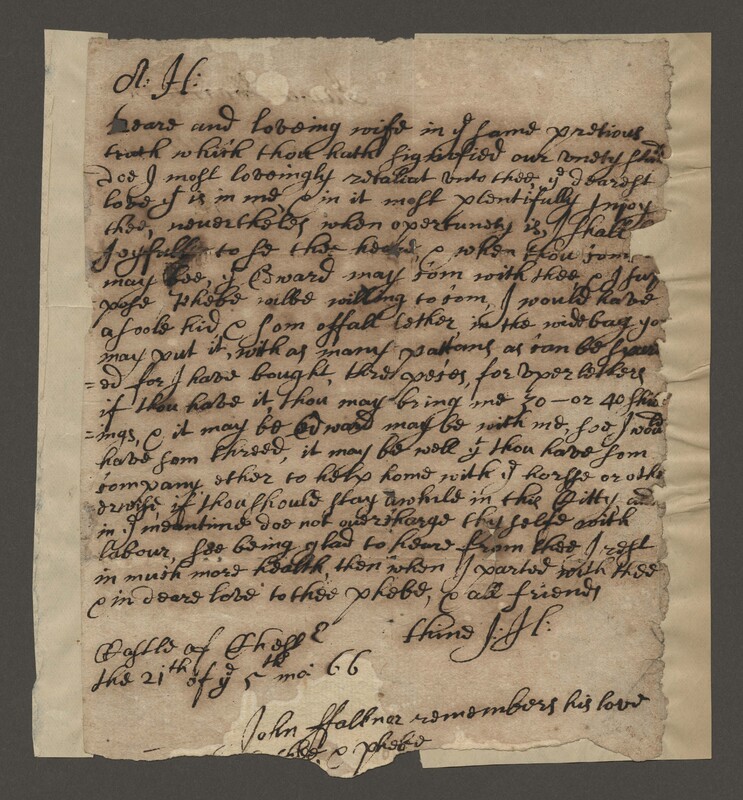 A: H:
deare and loveing wife in yͤ same pretious
truth which thou hath signified our unety
doe I most loveingly retaliat unto thee, yͤ dearest
love yͭ is in me, & in it most plentifully Injoy
thee, nevertheles when opertunety is, I shall
Joyfully to se thee heare, & when thou com
may bee, yͭ Edward may com with thee & I sup
pose Phebe wilbe willing to com, I would have
a soole hid, & som offall lether, in the wide bag yo
may put it, with as many pattans as can be spar
=ed for I have bought, three peses, for uper lethers
if thou have it, thou may bring me 30 - or 40 shil
=ings, & it may be Edward may be with me, soe I would
have som threed, it may be well yͭ thou have som
company ether to help home with yͤ horsse or othe
erwise, if thou should stay awhile in this Citty and
in yͤ meantime doe not overcharge thy selfe with
labour, soe being glad to heare from thee I rest
in much more health, then when I parted with thee
& in deare love to thee phebe, & all friends
thine J: H:
Castle of Chestͬ
the 21ᵗʰ of yͤ 5ᵗʰ mo: 66
John ffalkner remembers his love
thee, & phebe